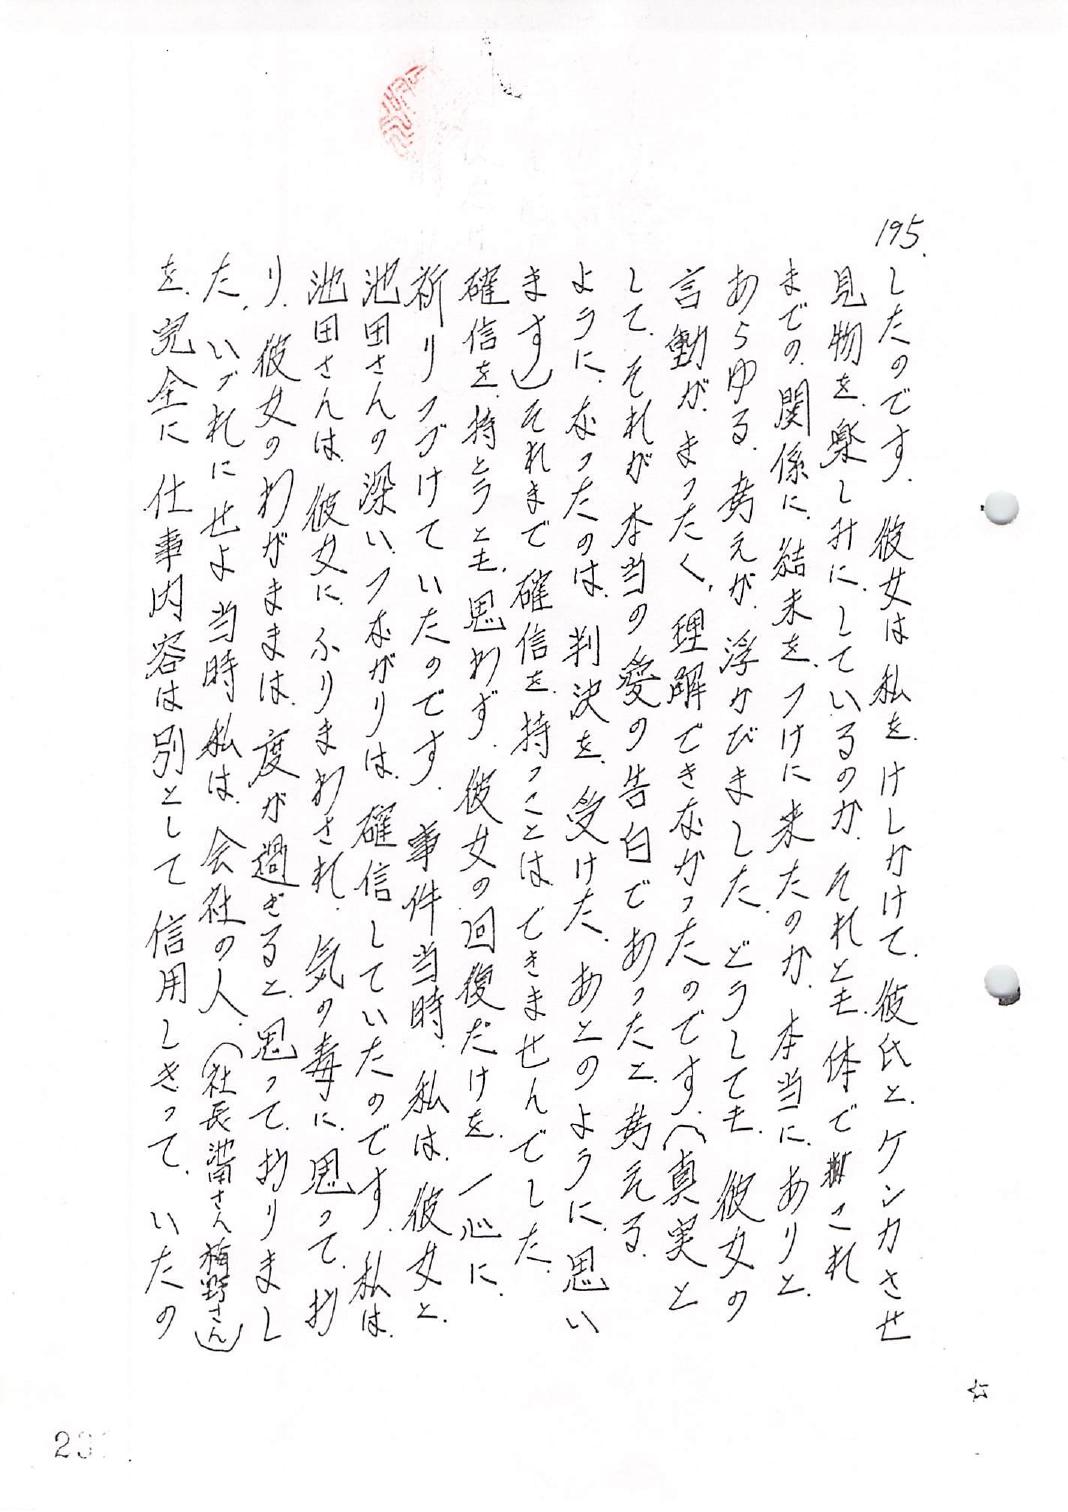 195.
したのです. 彼女は私を. けしかけて. 彼氏と. ケンカさせ
見物を. 楽しみに. しているのか. それとも. 体で. これ
までの. 関係に. 結末を. つけに来たのか. 本当に. ありと.
あらゆる. 考えが. 浮かびました. どうしても. 彼女の
言動が. まったく. 理解できなかったのです. (真実と
して. それが 本当の愛の告白であったと. 考える.
ように. なったのは. 判決を. 受けた. あとのように. 思い
ます)それまで確信を. 持つことは. できませんでした.
確信を. 持とうとも. 思わず. 彼女の回復だけを. 一心に.
祈りつづけていたのです. 事件当時. 私は. 彼女と.
池田さんの深い. つながりは. 確信していたのです. 私は.
池田さんは. 彼女に. ふりまわされ. 気の毒に. 思って. お
り. 彼女のわがままは. 度が過ぎると. 思って. おりまし
た. いづれにせよ当時 私は. 会社の人. (社長 池田さん 梅野さん)
を. 完全に 仕事内容は別として 信用しきって. いたの
☆